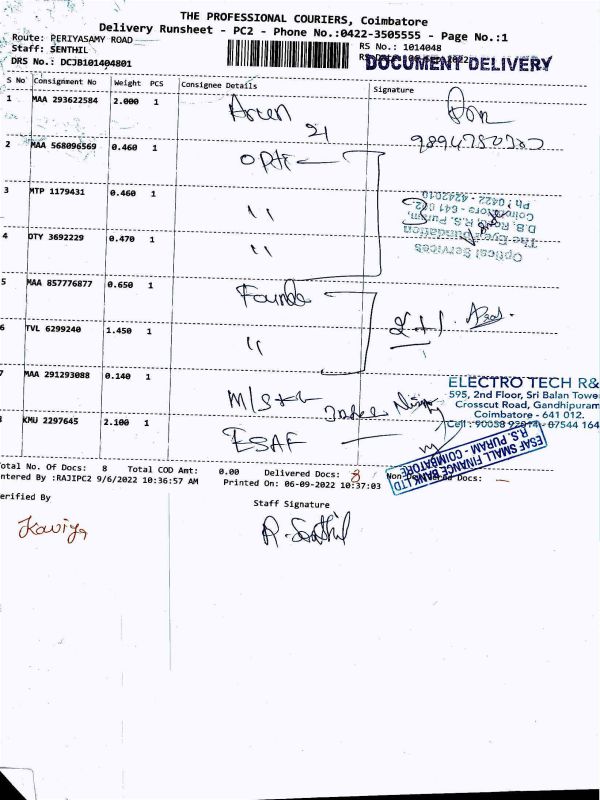 THE PROFESSIONAL COURIERS, Coimbatore
Delivery Runsheet - PC2 - Phone No.:0422-3505555 - Page No.:1
Route: PERIYASAMY ROAD
RS No.: 1014048
Staff: SENTHIL
DOCUMENT DELIVERY
DRS No.: DCJB101404801
S No Consignment No Weight PCS Consignee Details Signature
1 MAA 293622584 2.000 1
2 MAA 568096569 0.460 1
3 MTP 1179431 0.460 1 "
4 OTY 3692229 0.470 1 "
Optical Services
The Eye Foundation
D.B. Road, R.S. Puram,
Coimbatore - 641 002.
Ph : 0422 - 4242010
5 MAA 857776877 0.650 1
6 TVL 6299240 1.450 1 "
7 MAA 291293088 0.140 1
ELECTRO TECH R&
595, 2nd Floor, Sri Balan Towe
Crosscut Road, Gandhipuram
Coimbatore - 641 012.
KMU 2297645 2.100 1 ESAF
ESAF SMALL FINANCE BANK LTD
R.S. PURAM - COIMBATORE
otal No. Of Docs: 8 Total COD Amt: 0.00 Delivered Docs: 8 Docs:
ntered By :RAJIPC2 9/6/2022 10:36:57 AM Printed On: 06-09-2022 10:37:03
erified By
Staff Signature
Kaviya
R. Senthil